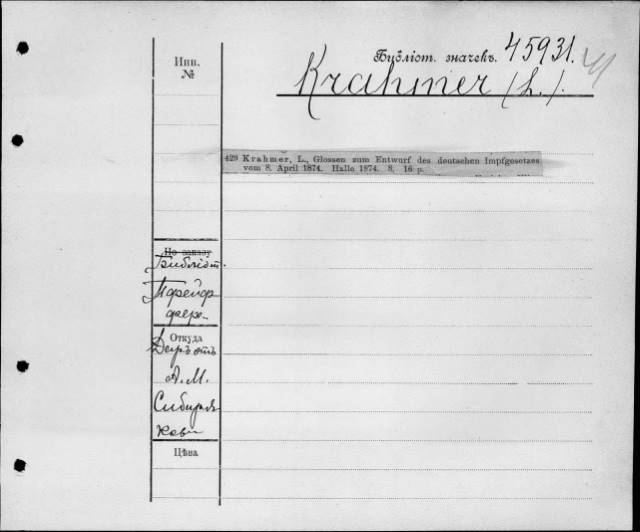 Инв.
№
Библіот. значекъ. 45931.
Krahmer (L.).
429 Krahmer, L., Glossen zum Entwurf des deutschen Impfgesetzes
vom 8. April 1874. Halle 1874. 8. 16 p.
По заказу
Библіот.
Откуда
Даръ отъ
А. М.
Сибиря
кова
Цѣна